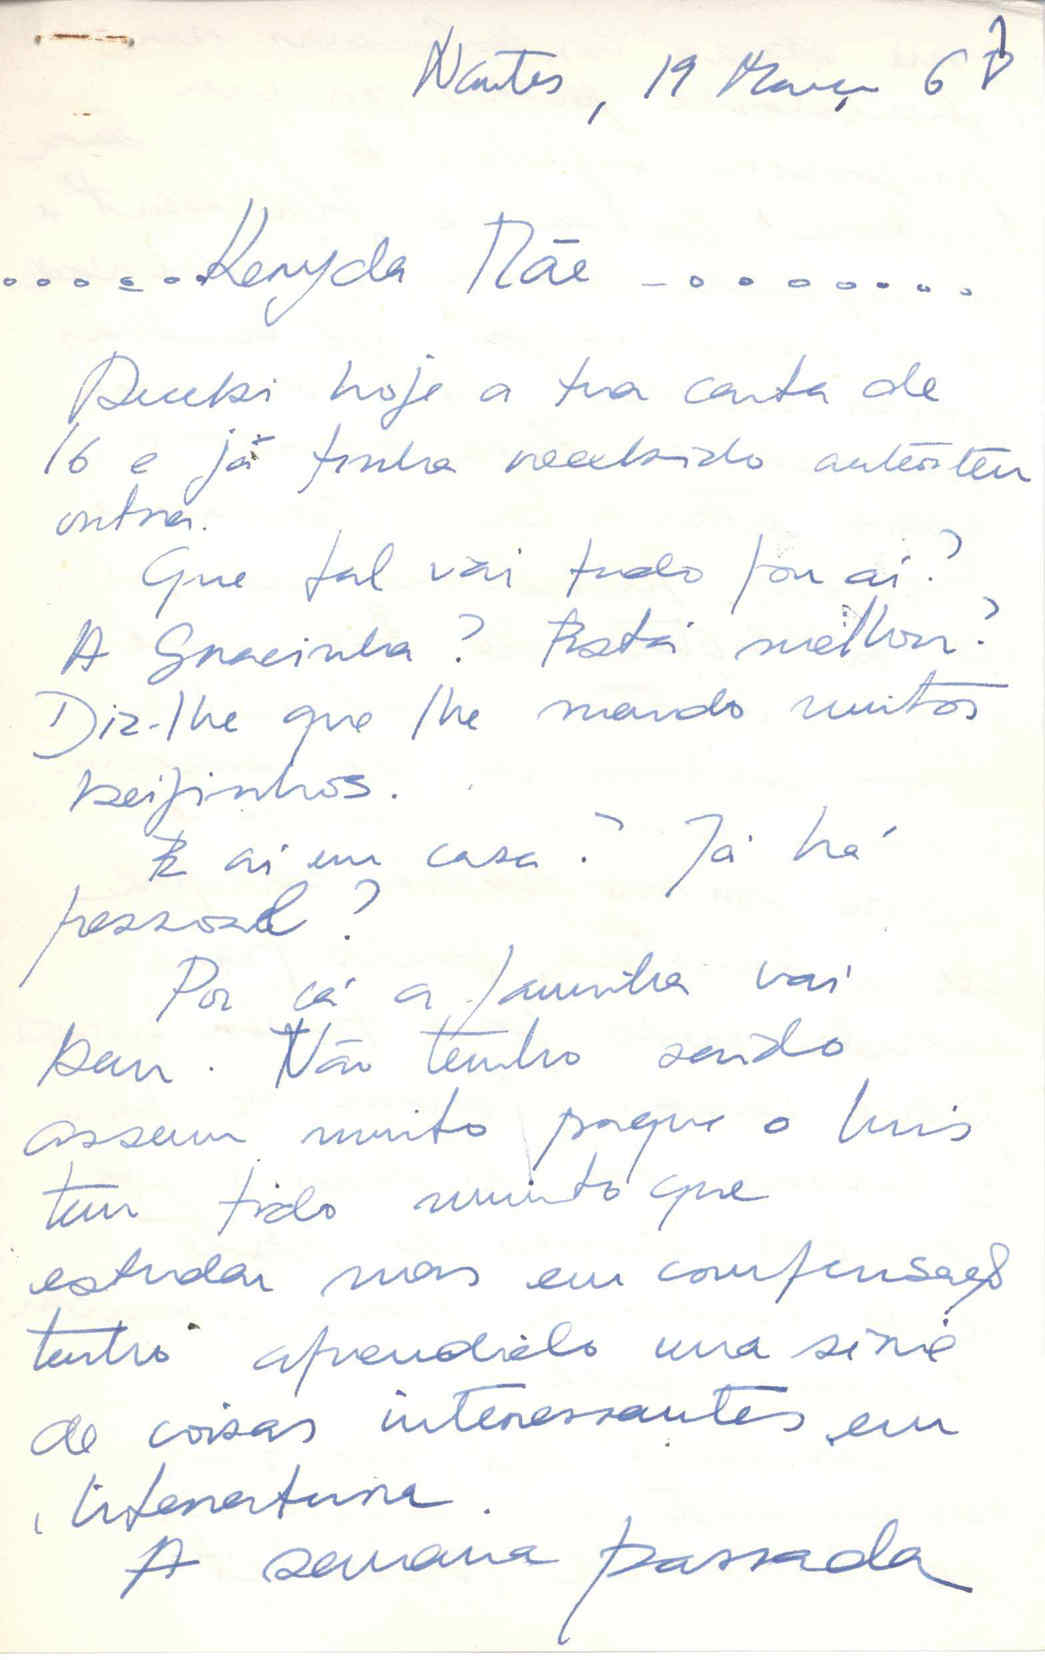 Nantes, 19 Março 67
......Keryda Mãe -........
Recebi hoje a tua carta de
16 e já tinha recebido anteontem
outra.
Que tal vai tudo por aí?
A Gracinha? Está melhor?
Diz-lhe que lhe mando muitos
beijinhos.
E aí em casa? Já há
pessoal?
Por cá a familia vai
bem. Não tenho saído
assim muito porque o Luis
tem tido muito que
estudar mas em compensação
tenho aprendido uma série
de coisas interessantes em
literatura.
A semana passada